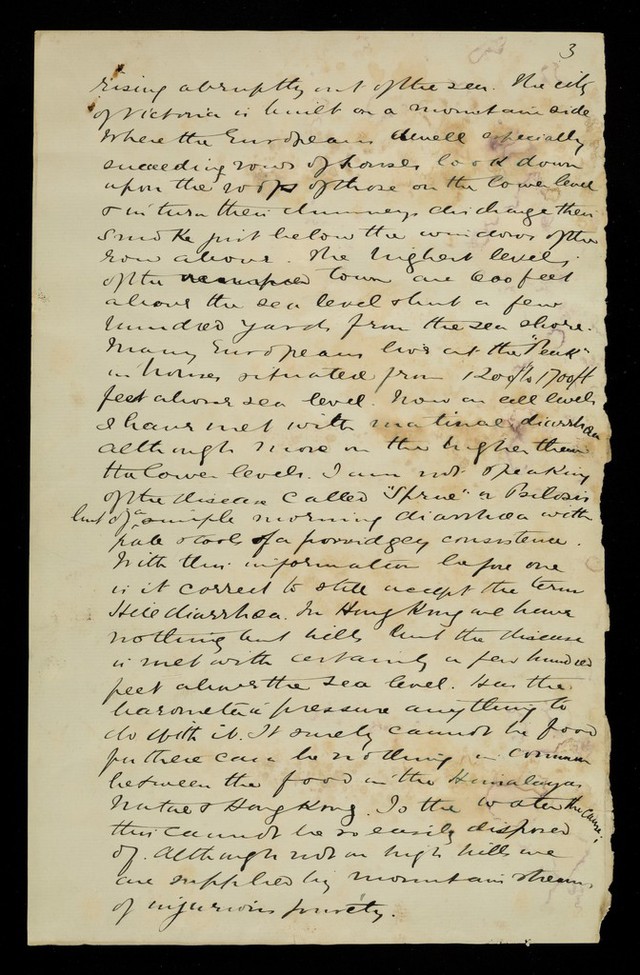 3
rising abruptly out of the sea. The city
of Victoria is built on a mountain side
where the Europeans dwell especially
succeeding rows of houses look down
upon the roofs of those on the lower level
& in turn their chimneys discharge their
smoke just below the windows of the
row above. The highest levels
of the town are 600 feet
above the sea level & but a few
hundred yards from the sea shore.
Many Europeans live at the "Peak"
in houses situated from 1200 ft to 1700 ft
feet above sea level. Now on all levels
I have met with matinal diarrhœa
although more on the higher than
the lower levels. I am not speaking
of the disease called "Sprue" or Psilosis
but of a simple morning diarrhœa with
pale stools of a porridgey consistence.
With this information before one
is it correct to still accept the term
Hill diarrhœa. In Hong Kong we have
nothing but hills but the disease
is met with certainly a few hundred
feet above the sea level. Has the
barometric pressure anything to
do with it. It surely cannot be food
for there can be nothing in common
between the food in the Himalayas
Natur & Hong Kong. Is the water the cause;
this cannot be so easily disposed
of. Although not on high hills we
are supplied by mountain streams
of injurious purity.